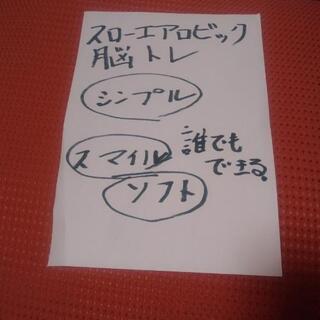 スローエアロビック
脳トレ
シンプル
スマイル
誰でも
できる。
ソフト